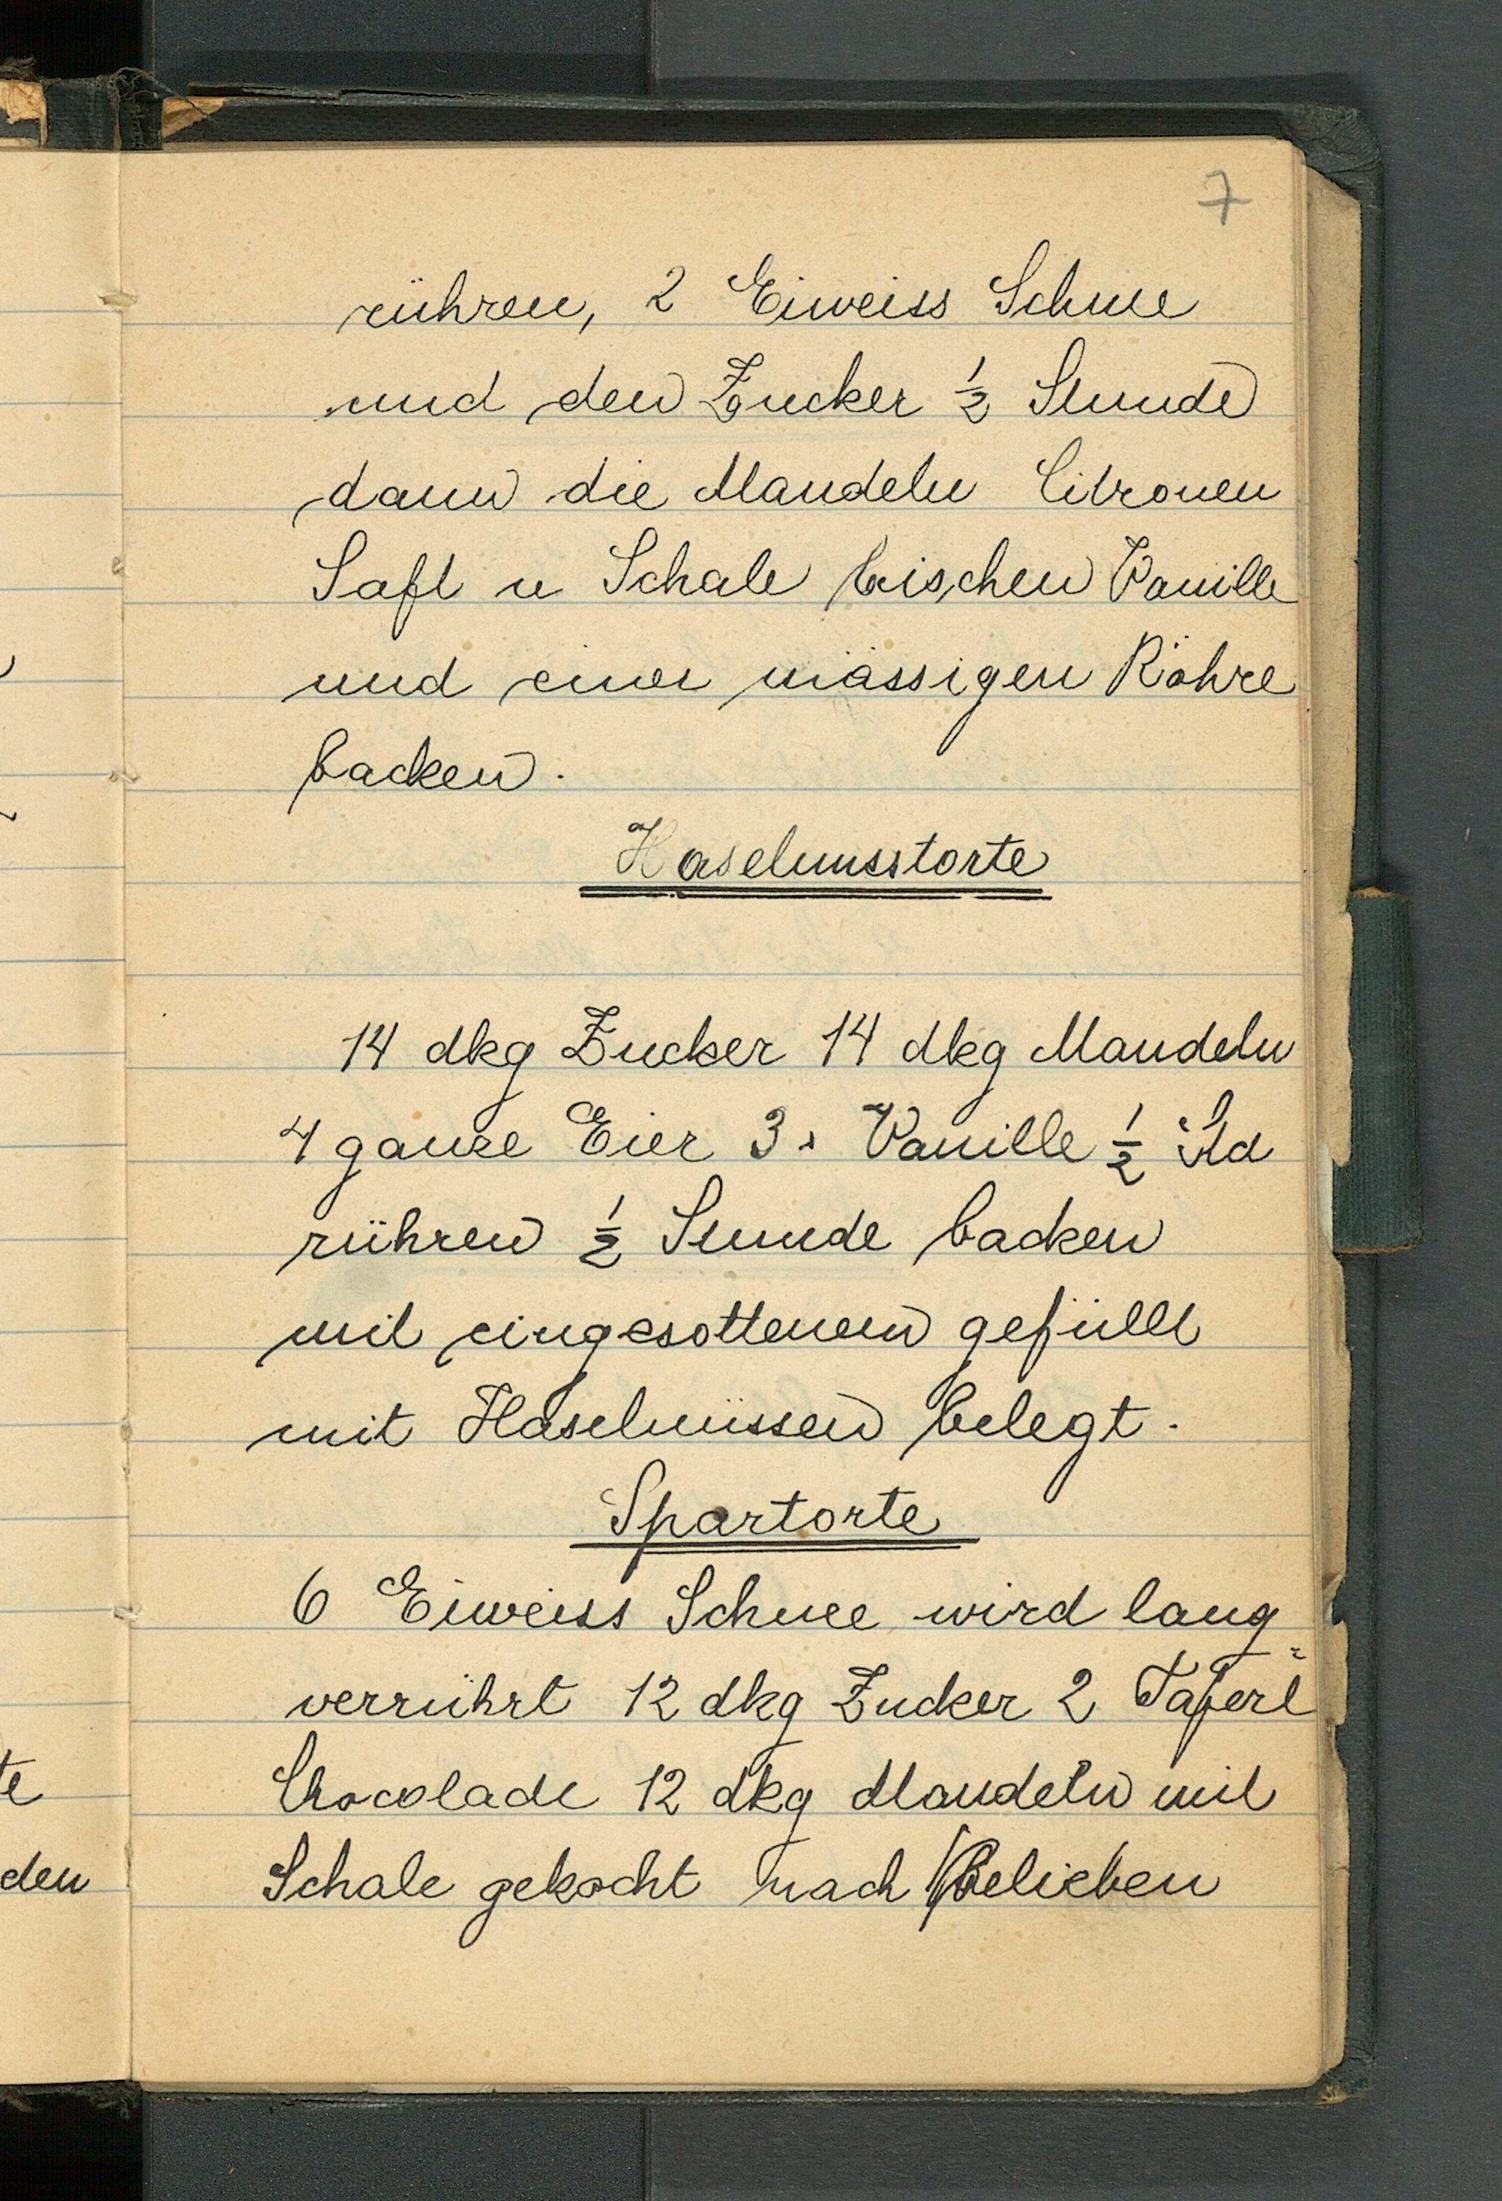 7
rühren, 2 Eiweiss Schnee
und den Zucker ½ Stunde
dann die Mandeln Citronen
Saft u Schale bischen Vanille
und einer mässigen Röhre
backen.
Haselnusstorte
14 dkg Zucker 14 dkg Mandeln
4 ganze Eier Vanille ½ Std
rühren ½ Stunde backen
mit eingesottenem gefüllt
mit Haselnüssen belegt.
Spartorte
6 Eiweiss Schnee wird lang
verrührt 12 dkg Zucker 2 Taferl
Chocolade 12 dkg Mandeln mit
Schale gekocht nach Belieben
te
den